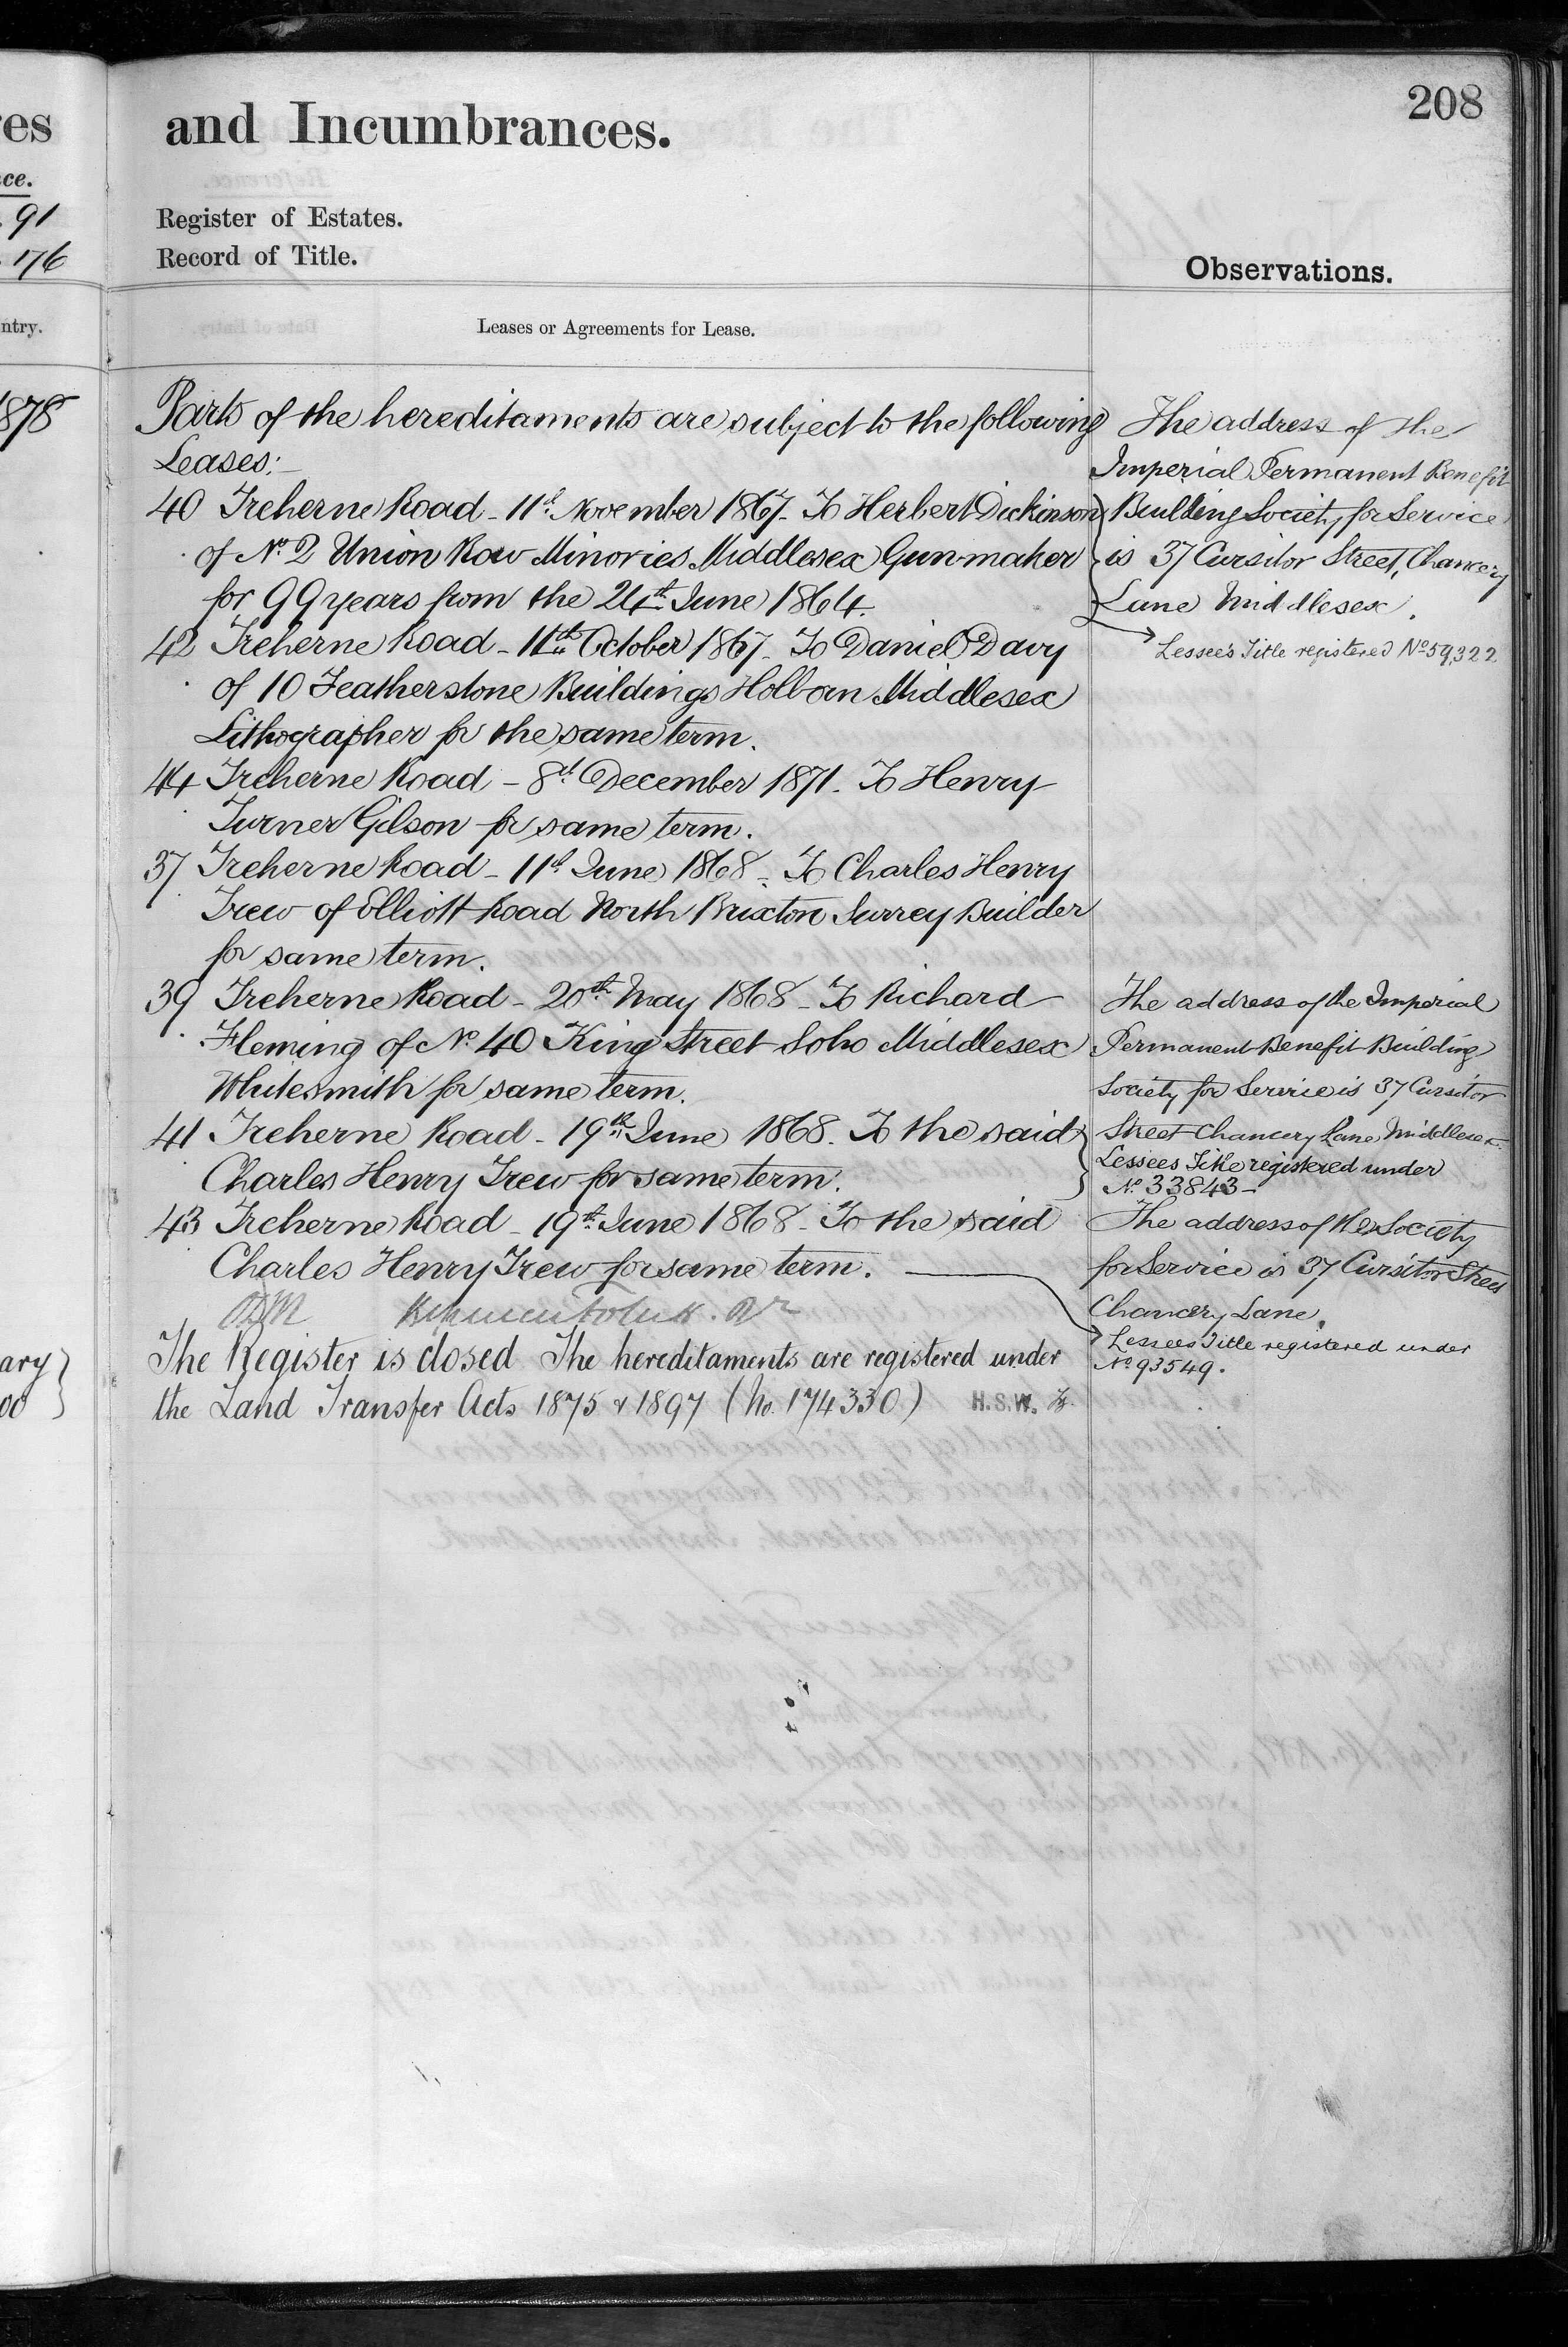 208
res
and Incumbrances.
ce.
91
Register of Estates.
176
Record of Title.
Observations.
ntry.
Leases or Agreements for Lease.
1878
Parts of the hereditaments are subject to the following
Leases:-
40 Treherne Road - 11th November 1867 - To Herbert Dickinson
of No. 2 Union Row Minories Middlesex Gun-maker
for 99 years from the 24th June 1864.
42 Treherne Road - 11th October 1867 - To Daniel Davy
of 10 Featherstone Buildings Holborn Middlesex
Lithographer for the same term.
44 Treherne Road - 8th December 1871 - To Henry
Turner Gilson for same term.
37 Treherne Road - 11th June 1868 - To Charles Henry
Trew of Elliott Road North Brixton Surrey Builder
for same term.
39 Treherne Road - 20th May 1868 - To Richard
Fleming of No. 40 King Street Soho Middlesex
Whitesmith for same term.
41 Treherne Road - 19th June 1868. To the said
Charles Henry Trew for same term.
43 Treherne Road - 19th June 1868 - To the said
Charles Henry Trew for same term.
The Register is closed The hereditaments are registered under
the Land Transfer Acts 1875 & 1897 (No. 174330) H.S.W.
ary
00
The address of the
Imperial Permanent Benefit
Building Society for Service
is 37 Cursitor Street, Chancery
Lane Middlesex.
Lessee's Title registered No. 59,322
The address of the Imperial
Permanent Benefit Building
Society for Service is 37 Cursitor
Street Chancery Lane Middlesex
Lessees Title registered under
No. 33843 -
The address of the Society
for Service is 37 Cursitor Street
Chancery Lane.
Lessees Title registered under
No. 93549.